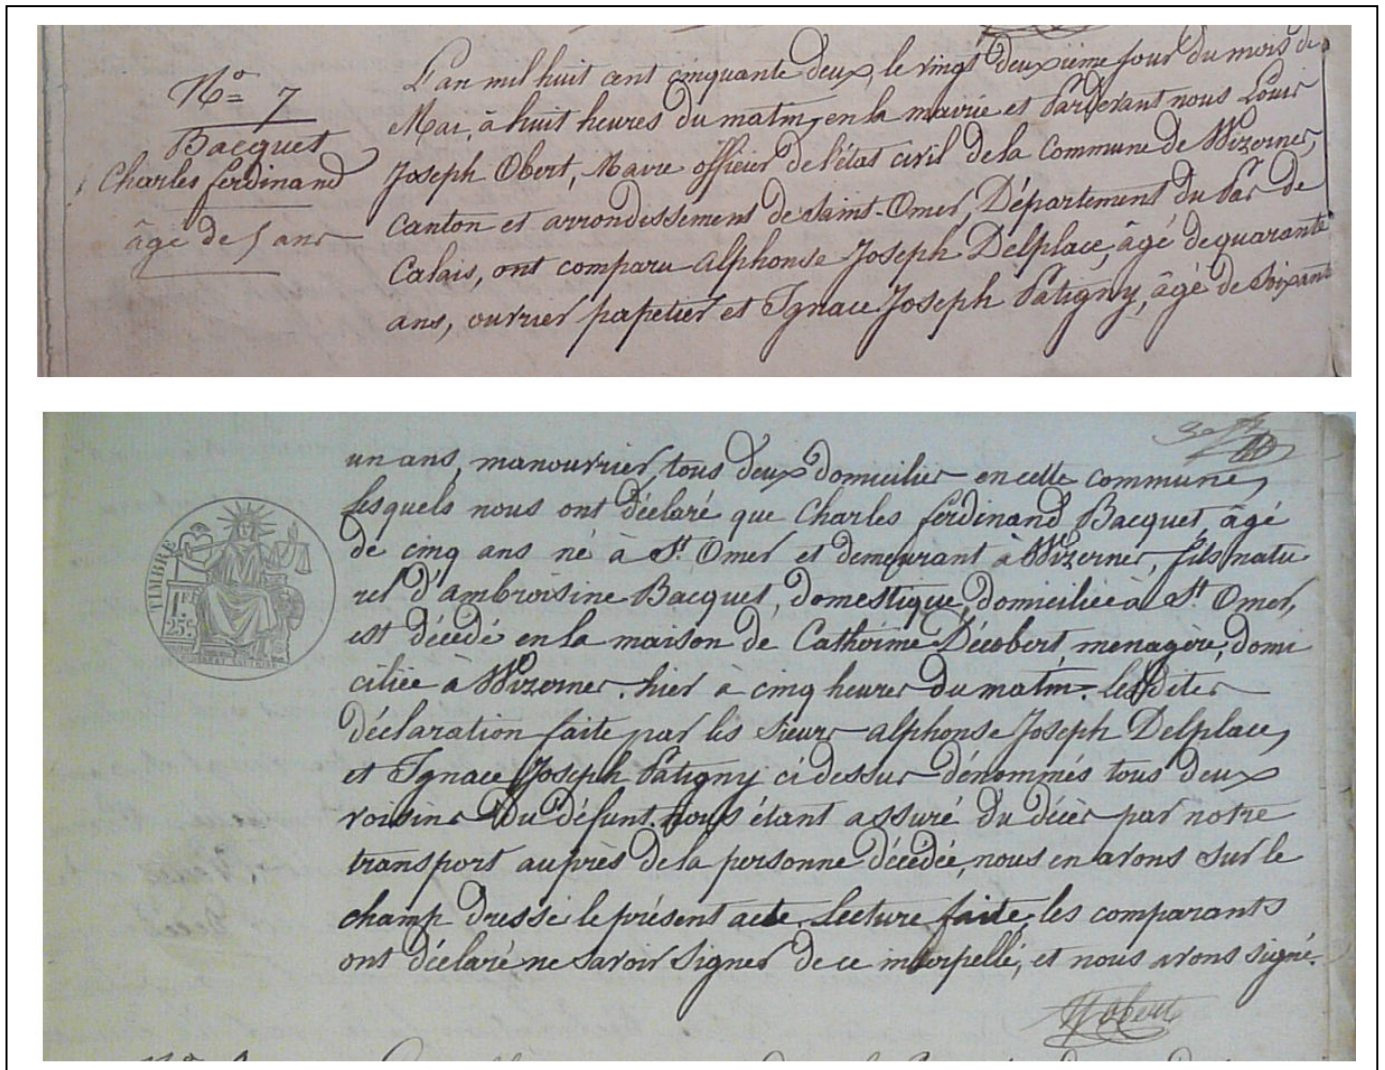 No= 7
Bacquet
Charles ferdinand
âgé de 5 ans
L'an mil huit cent cinquante deux, le vingt deuxième jour du mois de
Mai, à huit heures du matin, en la mairie et Pardevant nous Louis
Joseph Obert, Maire officier de l'état civil de la Commune de Wizernes,
Canton et arrondissement de Saint-Omer, Département du Pas de
Calais, ont comparu Alphonse Joseph Delplace, âgé de quarante
ans, ouvrier papetier et Ignace Joseph Patigny, âgé de Soixante
un ans, manouvrier, tous deux domiciliés en cette commune,
lesquels nous ont déclaré que Charles ferdinand Bacquet, âgé
de cinq ans né à St. Omer et demeurant à Wizernes, fils natu
rel d'Ambroisine Bacquet, domestique, domiciliée à St. Omer,
est décédé en la maison de Catherine Décobert, menagère, domi
ciliée à Wizernes. hier à cinq heures du matin. Les dites
déclaration faite par les Sieurs Alphonse Joseph Delplace,
et Ignace Joseph Patigny ci dessus dénommés tous deux
voisins du défunt. nous étant assuré du décès par notre
transport auprès de la personne décédée, nous en avons sur le
champ dressé le présent acte. Lecture faite, les comparants
ont déclaré ne savoir signer de ce interpellé, et nous avons signé.
TIMBRE
1F.
25c.
Obert